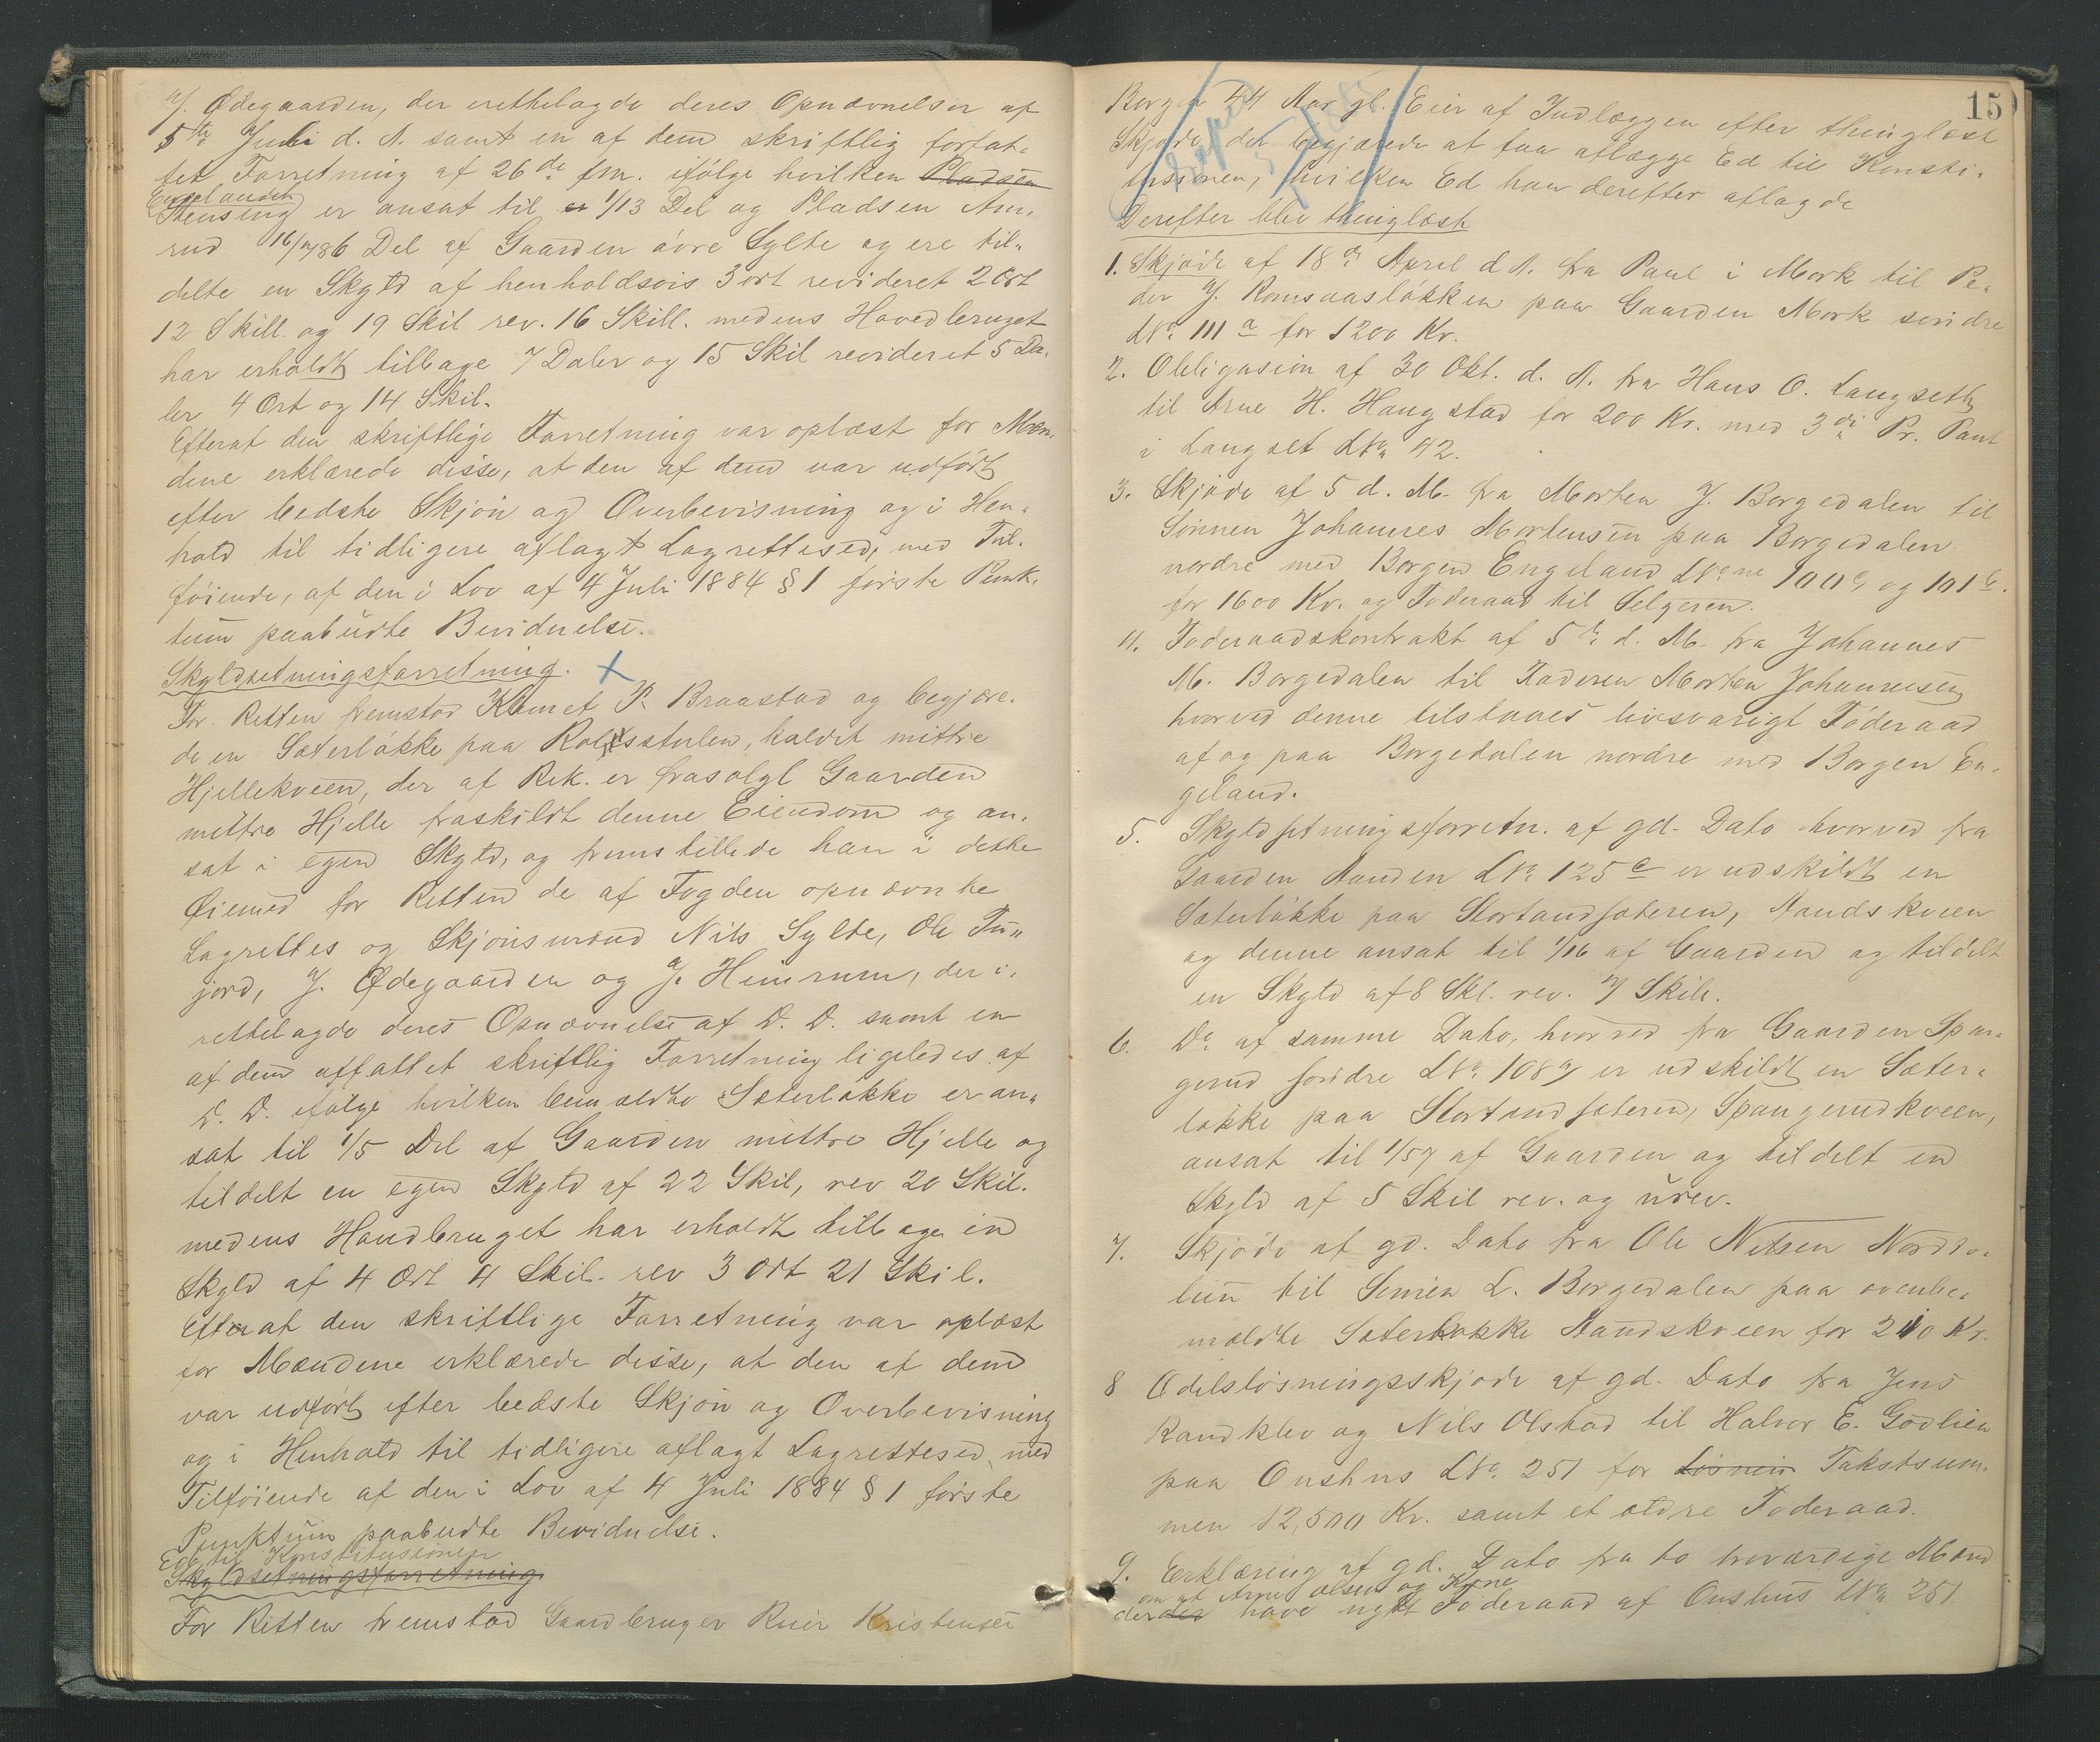 J. Ødegaarden, der irettelagde deres Opnævnelser af
5te Juli d. A. samt en af dem skriftlig forfat-
tet Forretning af 26de f.m. ifølge hvilken Pladsen
Engelauden
Stensing er ansat til 1/13 Del og Pladsen Am-
rud 16/786 Del af Gaarden øvre Sylte og ere til-
delte en Skyld af henholdsvis 3 ort revideret 2 Ort
12 Skill. og 19 Skil rev. 16 Skill. medens Hovedbruget
har erholdt tilbage 7 Daler og 15 Skil revideret 5 Da-
ler 4 Ort og 14 Skil.
Efterat den skriftlige Forretning var oplæst for Mæn-
dene erklærede disse, at den af dem var udført
efter bedste Skjøn og Overbevisning og i Hen-
hold til tidligere aflagt Lagrettesed, med Til-
føiende, af den i Lov af 4 Juli 1884 § 1 første Punk-
tum paabudte Bevidnelse.
Skyldsetningsforretning. X
For Retten fremstod Klemet P. Braastad og begjære-
de en Sæterløkke paa Rolsstulen, kaldet mittre
Hjellekveen, der af Rek. er frasolgt Gaarden
mittre Hjelle fraskildt denne Eiendom og an-
sat i egen Skyld, og fremstillede han i dette
Øiemed for Retten de af Fogden opnævnte
Lagrettes og Skjønsmænd Nils Sylte, Ole Tu-
fjord, J. Ødegaarden og J. Heimrum, der i-
rettelagde deres Opnævnelse af D. D. samt en
af dem affattet skriftlig Forretning ligeledes af
D. D. ifølge hvilken bemældte Sæterløkke er an-
sat til 1/5 Del af Gaarden mittre Hjelle og
tildelt en egen Skyld af 22 Skil, rev 20 Skil.
medens Hovedbruget har erholdt tilbage en
Skyld af 4 Ort 4 Skil. rev 3 Ort 21 Skil.
Efterat den skriftlige Forretning var oplæst
for Mændene erklærede disse, at den af dem
var udført efter bedste Skjøn og Overbevisning
og i Henhold til tidligere aflagt Lagrettesed, med
Tilføiende af den i Lov af 4 Juli 1884 § 1 første
Punktum paabudte Bevidnelse.
Ed til Konstitusionen
Skyldsetningsforretning
For Retten fremstod Gaardbruger Reier Kristensen
15
Borgen 44 Aar gl. Eier af Indlæggen efter thinglæst
Skjøde, der begjærede at faa aflægge Ed til Konsti-
tusionen, hvilken Ed han derefter aflagde
Derefter blev thinglæst
1. Skjøde af 18de April d. A. fra Paul i Mork til Pe-
der J. Romsaasløkken paa Gaarden Mork søndre
LNo 111a for 1200 Kr.
2. Obligasion af 30 Okt. d. A. fra Hans O. Langseth
til Arne H. Haugstad for 200 Kr. med 3di Pr. Pant
i Langset LNo 42.
3. Skjøde af 5 d. M. fra Morten J. Borgedalen til
Sønnen Johannes Mortensen paa Borgedalen
nordre med Borgen Engeland LNone 100c og 101b.
for 1600 Kr. og Føderaad til Selgeren.
4. Føderaadskontrakt af 5te d. M. fra Johannes
M. Borgedalen til Faderen Morten Johannesen
hvorved denne tilstaaes livsvarigt Føderaad
af og paa Borgedalen nordre med Borgen En-
geland.
5. Skyldsetningsforretn. af gd. Dato hvorved fra
Gaarden Aanden LNo 125c er udskildt en
Sæterløkke paa Stortandsæteren, Aandskveen
og denne ansat til 1/16 af Gaarden og tildelt
en Skyld af 8 Skl. rev. 7 Skill.
6. Do af samme Dato, hvorved fra Gaarden Span-
gerud søndre LNo 108a er udskildt en Sæter-
løkke paa Stortandsæteren, Spangrudkveen,
ansat til 1/57 af Gaarden og tildelt en
Skyld af 5 Skil rev. og urev.
7. Skjøde af gd. Dato fra Ole Nilsen Nordre-
lien til Simen L. Borgedalen paa ovenbe-
mældte Sæterløkke Aandskveen for 210 Kr.
8 Odelsløsningsskjøde af gd. Dato fra Jens
Randklev og Nils Olstad til Halvor E. Godlien
paa Onshus LNo. 251 for Løsnin Takstsum-
men 12,500 Kr. samt et ældre Føderaad.
9. Erklæring af gd. Dato fra to troværdige Mænd
om at Arne Olsen og Kone
der have nydt Føderaad af Onshus LNo 251